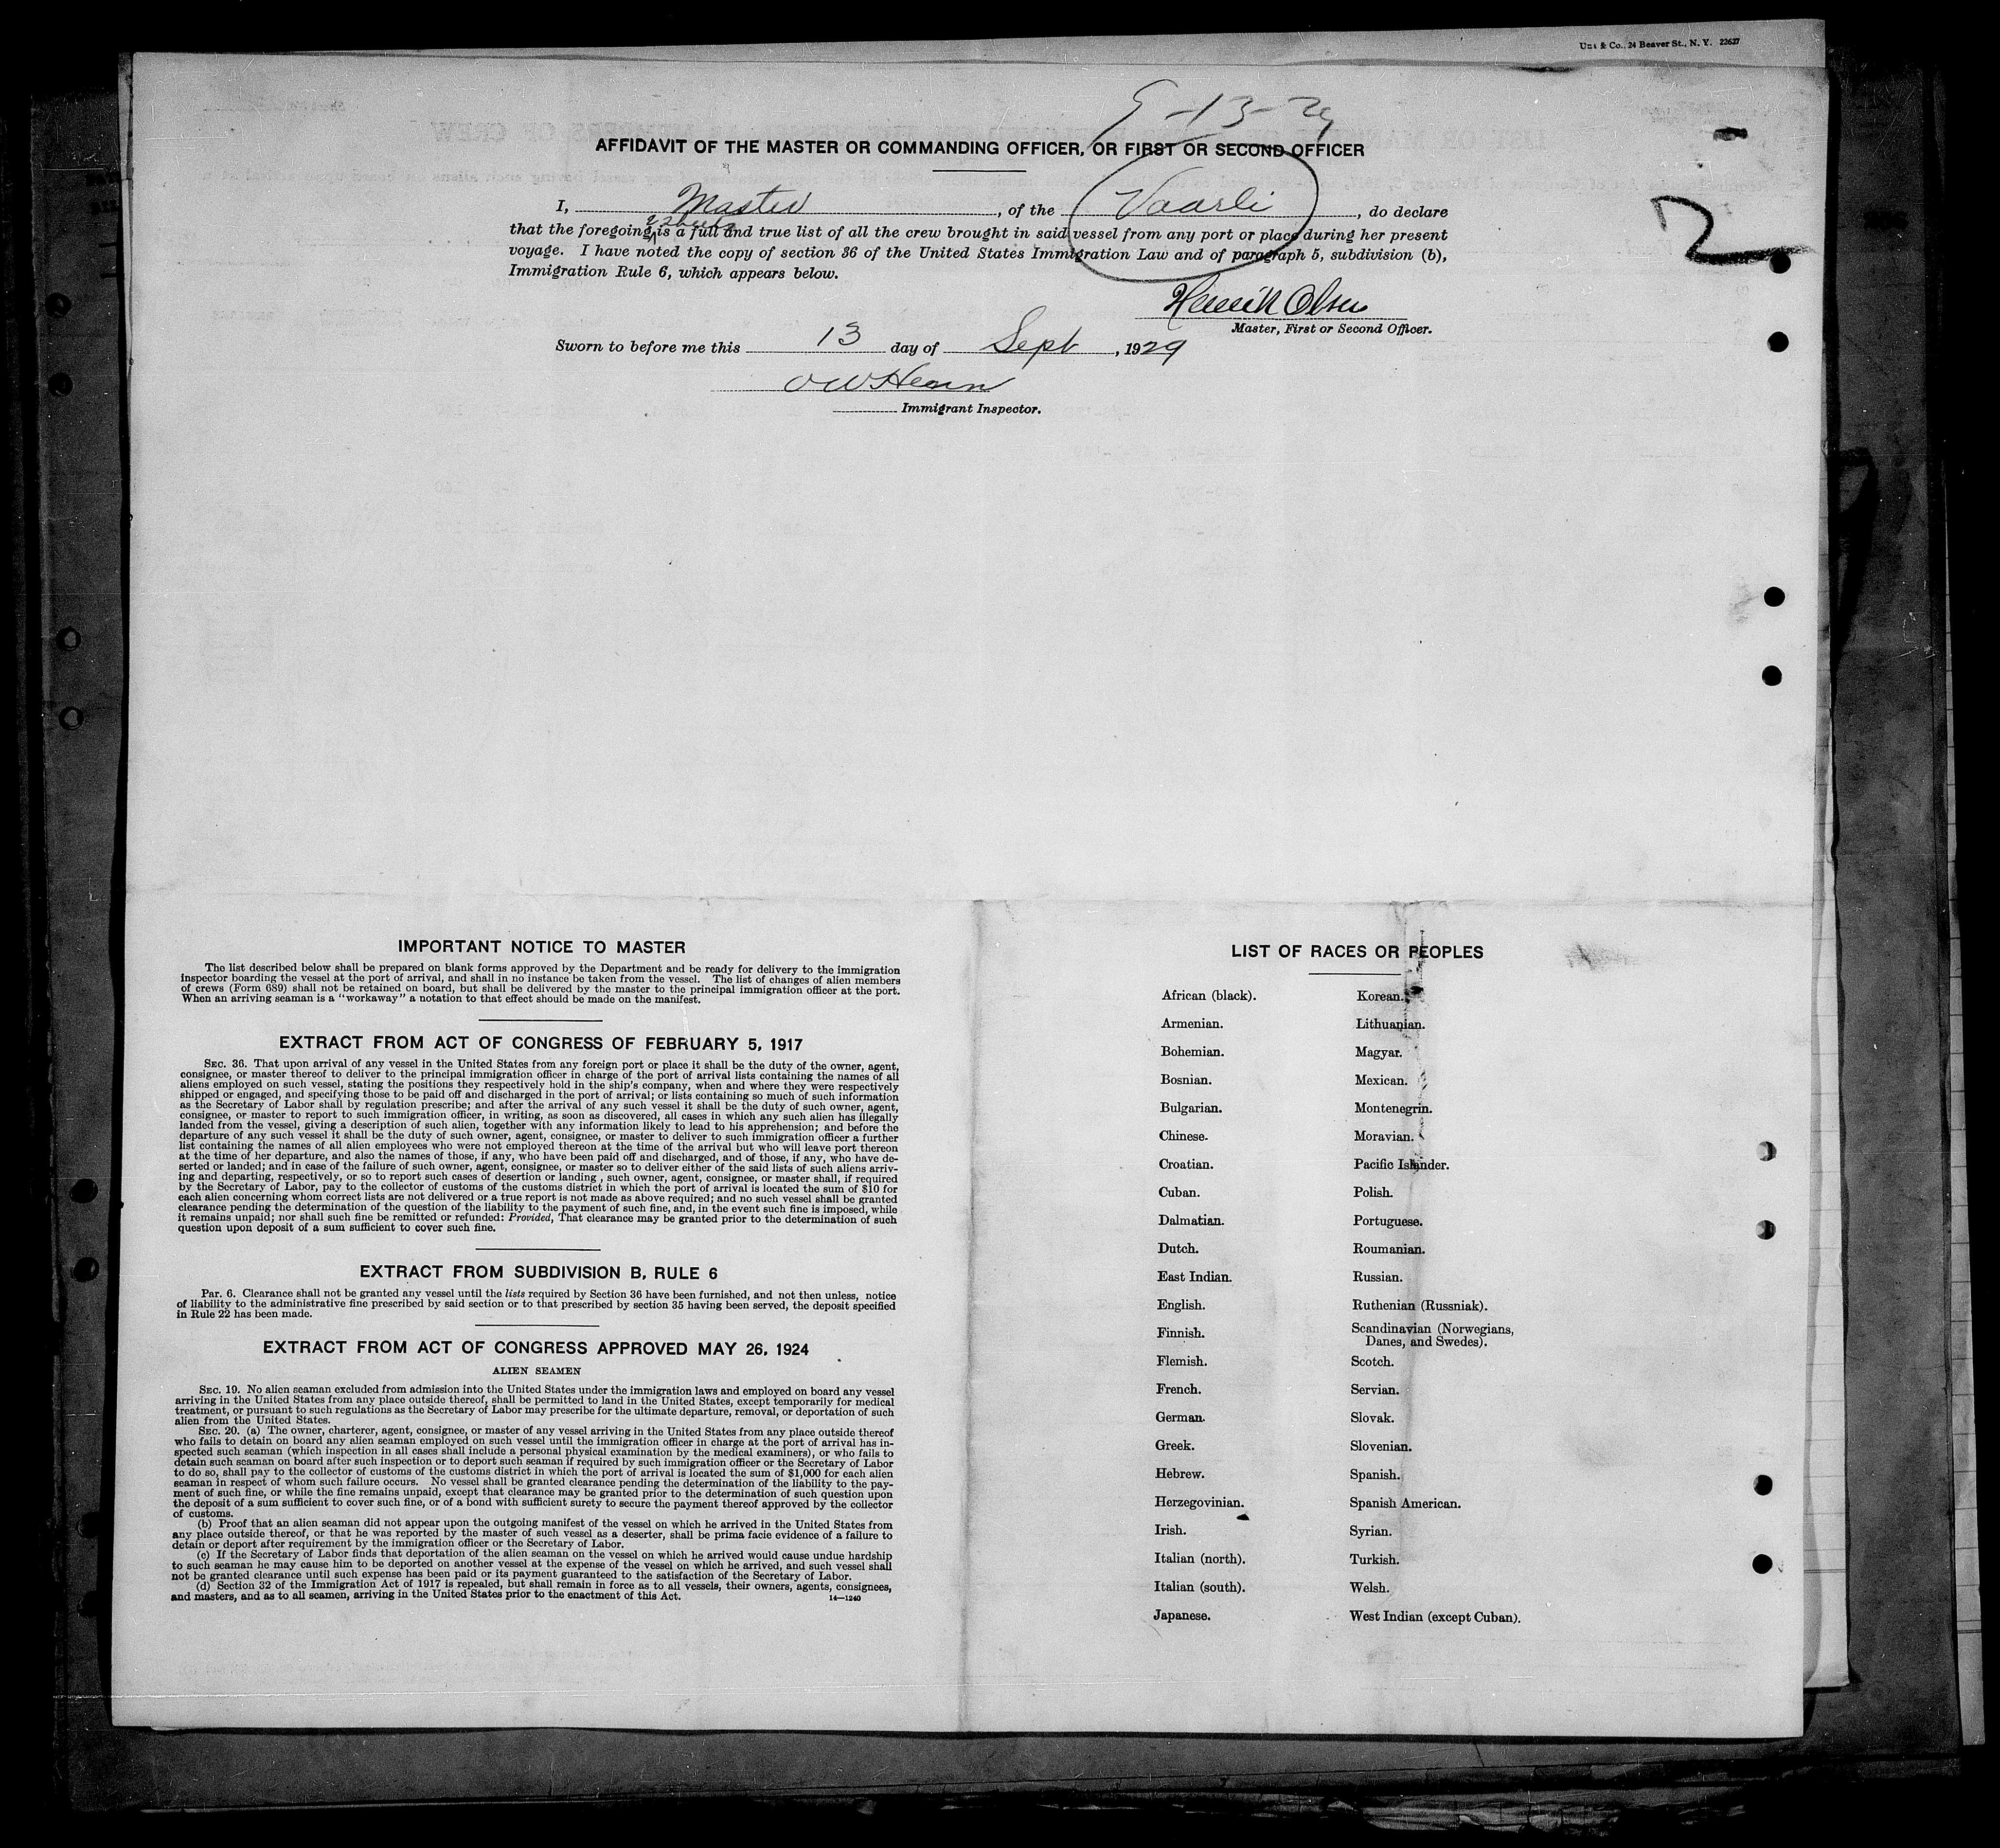 & Co., 24 Beaver St., N. Y. 22627
9-13-29
AFFIDAVIT OF THE MASTER OR COMMANDING OFFICER, OR FIRST OR SECOND OFFICER
2
I, Master, of the Vaarli, do declare
2 sheets
that the foregoing is a full and true list of all the crew brought in said vessel from any port or place during her present
voyage. I have noted the copy of section 36 of the United States Immigration Law and of paragraph 5, subdivision (b),
Immigration Rule 6, which appears below.
Henrik Olsen
Master, First or Second Officer.
Sworn to before me this 13 day of Sept, 1929
O W Henn
Immigrant Inspector.
IMPORTANT NOTICE TO MASTER
The list described below shall be prepared on blank forms approved by the Department and be ready for delivery to the immigration
inspector boarding the vessel at the port of arrival, and shall in no instance be taken from the vessel. The list of changes of alien members
of crews (Form 689) shall not be retained on board, but shall be delivered by the master to the principal immigration officer at the port.
When an arriving seaman is a "workaway" a notation to that effect should be made on the manifest.
EXTRACT FROM ACT OF CONGRESS OF FEBRUARY 5, 1917
SEC. 36. That upon arrival of any vessel in the United States from any foreign port or place it shall be the duty of the owner, agent,
consignee, or master thereof to deliver to the principal immigration officer in charge of the port of arrival lists containing the names of all
aliens employed on such vessel, stating the positions they respectively hold in the ship's company, when and where they were respectively
shipped or engaged, and specifying those to be paid off and discharged in the port of arrival; or lists containing so much of such information
as the Secretary of Labor shall by regulation prescribe; and after the arrival of any such vessel it shall be the duty of such owner, agent,
consignee, or master to report to such immigration officer, in writing, as soon as discovered, all cases in which any such alien has illegally
landed from the vessel, giving a description of such alien, together with any information likely to lead to his apprehension; and before the
departure of any such vessel it shall be the duty of such owner, agent, consignee, or master to deliver to such immigration officer a further
list containing the names of all alien employees who were not employed thereon at the time of the arrival but who will leave port thereon
at the time of her departure, and also the names of those, if any, who have been paid off and discharged, and of those, if any, who have de-
serted or landed; and in case of the failure of such owner, agent, consignee, or master so to deliver either of the said lists of such aliens arriv-
ing and departing, respectively, or so to report such cases of desertion or landing , such owner, agent, consignee, or master shall, if required
by the Secretary of Labor, pay to the collector of customs of the customs district in which the port of arrival is located the sum of $10 for
each alien concerning whom correct lists are not delivered or a true report is not made as above required; and no such vessel shall be granted
clearance pending the determination of the question of the liability to the payment of such fine, and, in the event such fine is imposed, while
it remains unpaid; nor shall such fine be remitted or refunded: Provided, That clearance may be granted prior to the determination of such
question upon deposit of a sum sufficient to cover such fine.
EXTRACT FROM SUBDIVISION B, RULE 6
Par. 6. Clearance shall not be granted any vessel until the lists required by Section 36 have been furnished, and not then unless, notice
of liability to the administrative fine prescribed by said section or to that prescribed by section 35 having been served, the deposit specified
in Rule 22 has been made.
EXTRACT FROM ACT OF CONGRESS APPROVED MAY 26, 1924
ALIEN SEAMEN
SEC. 19. No alien seaman excluded from admission into the United States under the immigration laws and employed on board any vessel
arriving in the United States from any place outside thereof, shall be permitted to land in the United States, except temporarily for medical
treatment, or pursuant to such regulations as the Secretary of Labor may prescribe for the ultimate departure, removal, or deportation of such
alien from the United States.
SEC. 20. (a) The owner, charterer, agent, consignee, or master of any vessel arriving in the United States from any place outside thereof
who fails to detain on board any alien seaman employed on such vessel until the immigration officer in charge at the port of arrival has in-
spected such seaman (which inspection in all cases shall include a personal physical examination by the medical examiners), or who fails to
detain such seaman on board after such inspection or to deport such seaman if required by such immigration officer or the Secretary of Labor
to do so, shall pay to the collector of customs of the customs district in which the port of arrival is located the sum of $1,000 for each alien
seaman in respect of whom such failure occurs. No vessel shall be granted clearance pending the determination of the liability to the pay-
ment of such fine, or while the fine remains unpaid, except that clearance may be granted prior to the determination of such question upon
the deposit of a sum sufficient to cover such fine, or of a bond with sufficient surety to secure the payment thereof approved by the collector
of customs.
(b) Proof that an alien seaman did not appear upon the outgoing manifest of the vessel on which he arrived in the United States from
any place outside thereof, or that he was reported by the master of such vessel as a deserter, shall be prima facie evidence of a failure to
detain or deport after requirement by the immigration officer or the Secretary of Labor.
(c) If the Secretary of Labor finds that deportation of the alien seaman on the vessel on which he arrived would cause undue hardship
to such seaman he may cause him to be deported on another vessel at the expense of the vessel on which he arrived, and such vessel shall
not be granted clearance until such expense has been paid or its payment guaranteed to the satisfaction of the Secretary of Labor.
(d) Section 32 of the Immigration Act of 1917 is repealed, but shall remain in force as to all vessels, their owners, agents, consignees,
and masters, and as to all seamen, arriving in the United States prior to the enactment of this Act.
14—1240
LIST OF RACES OR PEOPLES
African (black).
Armenian.
Bohemian.
Bosnian.
Bulgarian.
Chinese.
Croatian.
Cuban.
Dalmatian.
Dutch.
East Indian.
English.
Finnish.
Flemish.
French.
German.
Greek.
Hebrew.
Herzegovinian.
Irish.
Italian (north).
Italian (south).
Japanese.
Korean.
Lithuanian.
Magyar.
Mexican.
Montenegrin.
Moravian.
Pacific Islander.
Polish.
Portuguese.
Roumanian.
Russian.
Ruthenian (Russniak).
Scandinavian (Norwegians,
Danes, and Swedes).
Scotch.
Servian.
Slovak.
Slovenian.
Spanish.
Spanish American.
Syrian.
Turkish.
Welsh.
West Indian (except Cuban).